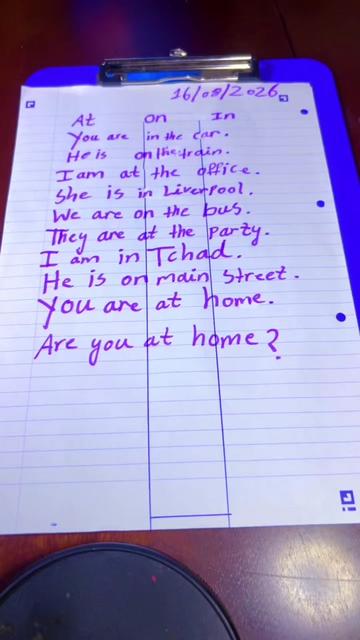 16/08/2026
At on In
You are in the car.
He is on the train.
I am at the office.
She is in Liverpool.
We are on the bus.
They are at the party.
I am in Tchad.
He is on main street.
You are at home.
Are you at home?